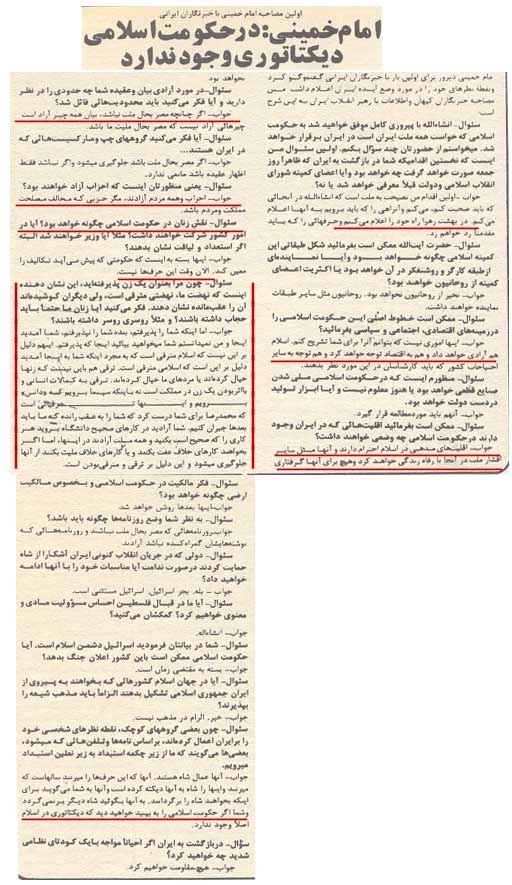 اولین مصاحبه امام خمینی با خبرنگاران ایرانی
امام خمینی: در حکومت اسلامی
دیکتاتوری وجود ندارد
امام خمینی دیروز برای اولین بار با خبرنگاران ایرانی گفتگو کرد
ونقطه نظرهای خود را در مورد وضع آینده ایران اعلام داشت متن
مصاحبه خبرنگاران کیهان واطلاعات با رهبر انقلاب ایران به این شرح
است:
سئوال- انشاءالله با پیروزی کامل موفق خواهید شد به حکومت
اسلامی که خواست همه ملت ایران است در ایران برقرار خواهد
شد. میخواستم از حضورتان چند سؤال بکنم. اولین سئوال من
اینست که نخستین اقدامیکه شما در بازگشت به ایران که ظاهرا روز
جمعه صورت خواهد گرفت چه خواهد بود وآیا اعضای کمیته شورای
انقلاب اسلامی ودولت قبلا معرفی خواهد شد یا نه؟
جواب- اولین اقدام من نصیحت به ملت است که انشاءالله در آنجائی
که باید صحبت کنم، میکنم وآنراهی را که باید برویم به آنها اعلام
می کنم. در بهشت زهرا راه خود را اعلام می‌کنم وحرفهائی را که باید
مقدمتا زد خواهم زد.
سئوال- حضرت آیت‌الله ممکن است بفرمائید شکل طبقاتی این
کمیته اسلامی چگونه خواهد بود وآیا نماینده‌ای
ازطبقه کارگر و روشنفکر در آن خواهد بود یا اکثریت اعضای
کمیته از روحانیون خواهند بود؟
جواب- نخیر از روحانیون نخواهد بود. روحانیون مثل سایر طبقات
نماینده خواهند داشت.
سئوال- ممکن است خطوط اصلی این حکومت اسلامی را
درزمینه‌های اقتصادی، اجتماعی و سیاسی بفرمائید؟
جواب- اینها اموری نیست که بتوانم آنرا برای شما تشریح کنم. اسلام
هم آزادی خواهد داد و هم به اقتصاد توجه خواهد کرد و هم توجه به سایر
احتیاجات کشور که باید کارشناسان در این مورد نظر بدهند.
سئوال- منظورم اینست که درحکومت اسلامی ملی شدن
صنایع قطعی خواهد بود یا هنوز معلوم نیست و آیا ابزار تولید
دردست دولت خواهد بود.
جواب- آنهم باید موردمطالعه قرار گیرد.
سئوال- ممکن است بفرمائید اقلیت‌هائی که در ایران وجود
دارند درحکومت اسلامی چه وضعی خواهند داشت؟
جواب- اقلیت‌های مذهبی در اسلام احترام دارند و آنها مثل سایر
اقشار ملت در آنجا با رفاه زندگی خواهند کرد وهیچ برای آنها گرفتاری
نخواهد بود
سئوال-در مورد آزادی بیان وعقیده شما چه حدودی را در نظر
دارید و آیا فکر می‌کنید باید محدودیت‌هائی قائل شد؟
جواب- اگر چنانچه مضر بحال ملت نباشد، بیان همه چیز آزاد است
چیزهائی آزاد نیست که مضر بحال ملت ما باشد.
سئوال- آیا فکر می‌کنید گروههای چپ ومارکسیست‌هائی که
در ایران هستند...
جواب- اگر مضر بحال ملت باشد جلوگیری میشود واگر نباشد فقط
اظهار عقیده باشد مانعی ندارد.
سئوال- یعنی منظورتان اینست که احزاب آزاد خواهند بود؟
جواب- احزاب وهمه مردم آزادند، مگر حزبی که مخالف مصلحت
مملکت ومردم باشد.
سئوال- نقش زنان در حکومت اسلامی چگونه خواهد بود؟ آیا در
امور کشور شرکت خواهند داشت؟ مثلا آیا وزیر خواهند شد البته
اگر استعداد و لیاقت نشان بدهند؟
جواب- اینها بسته به اینست که حکومتی که پیش می‌آید تکالیف را
معین کند. الان وقت این حرف‌ها نیست.
سئوال- چون مرا بعنوان یک زن پذیرفته‌اید، این نشان دهنده
اینست که نهضت ما، نهضتی مترقی است، ولی دیگران کوشیده‌اند
آن را عقب‌مانده نشان دهند. فکر می‌کنید آیا زنان ما حتما باید
حجاب داشته باشند؟ و مثلا روسری روسر داشته باشند؟
جواب- اما اینکه شما را پذیرفتم، بنده شما را نپذیرفتم، شما آمدید
اینجا و من نمیدانستم شما میخواهید بیائید اینجا که پذیرفتم. اینهم دلیل
بر این نیست که اسلام مترقی است که به مجرد اینکه شما به اینجا آمدید
دلیل بر این است که اسلامی مترقی است. ترقی هم باین نیست که زنها
خیال کرده‌اند یا مردهای ما خیال کرده‌اند. ترقی به کمالات انسانی و
بااثربودن یک زن در مملکت است نه باینکه سینما برویم وکه دانس»
برویم و اینها ترقیهائی است
که محمدرضا برای شما درست کرد که شما را به عقب رانده که ما باید
بعدها جبران کنیم. شما آزادید در کارهای صحیح دانشگاه بروید هر
کاری را که صحیح است بکنید و همه ملت آزادند در اینها، اما اگر
بخواهند کارهای خلاف عفت بکنند و یا کارهای خلاف ملیت بکنند از آنها
جلوگیری میشود و این دلیل بر ترقی و مترقی‌بودن است.
سئوال- فکر مالکیت در حکومت اسلامی و بخصوص مالکیت
ارضی چگونه خواهد بود؟
جواب-اینها بعدها روشن خواهد شد.
سئوال- به نظر شما وضع روزنامه‌ها چگونه باید باشد؟
جواب-روزنامه‌هائی که مضر بحال ملت نباشند و روزنامه‌هائی که
نوشته‌هایشان گمراه‌کننده نباشد آزادند.
سئوال- دولی که در جریان انقلاب کنونی ایران آشکارا از شاه
حمایت کردند درصورت ندامت آیا مناسبات خود را با آنها ادامه
خواهید داد؟
جواب - بله. بجز اسرائیل. اسرائیل مستثنی است.
سئوال- آیا ما در قبال فلسطین احساس مسؤولیت مادی و
معنوی خواهیم کرد؟ کمکشان می‌کنید؟
جواب- انشاءالله.
سئوال- شما در بیاناتتان فرمودید اسرائیل دشمن اسلام است. آیا
حکومت اسلامی ممکن است باین کشور اعلان جنگ بدهد؟
جواب- بسته به مقتضی زمان است.
سئوال- آیا در جهان اسلام کشورهائی که بخواهند به پیروی از
ایران جمهوری اسلامی تشکیل بدهند الزاما باید مذهب شیعه را
بپذیرند؟
جواب- خیر. الزام در مذهب نیست.
سئوال- چون بعضی گروههای کوچک، نقطه نظرهای شخصی خود
را برایران اعمال کرده‌اند، براساس نامه‌ها وتلفن‌هائی که میشود،
بعضی‌ها می‌گویند که ما از زیر چکمه استبداد به زیر نعلین استبداد
میرویم.
جواب- آنها عمال شاه هستند. آنها که این حرف‌ها را میزنند سالهاست که
میزنند واینها را شاه به آنها دیکته کرده است وآنها به شما می‌گوید برای
اینکه بخواهند شاه را برگردانند. به آنها بگوئید شاه دیگر برنمی‌گردد
وشما اگر حکومت اسلامی را به ببینید خواهید دید که دیکتاتوری در اسلام
اصلا وجود ندارد.
سؤال- دربازگشت به ایران اگر احیانا مواجه بایک کودتای نظامی
شدید چه خواهید کرد؟
جواب- هیچ.مقاومت خواهیم کرد.